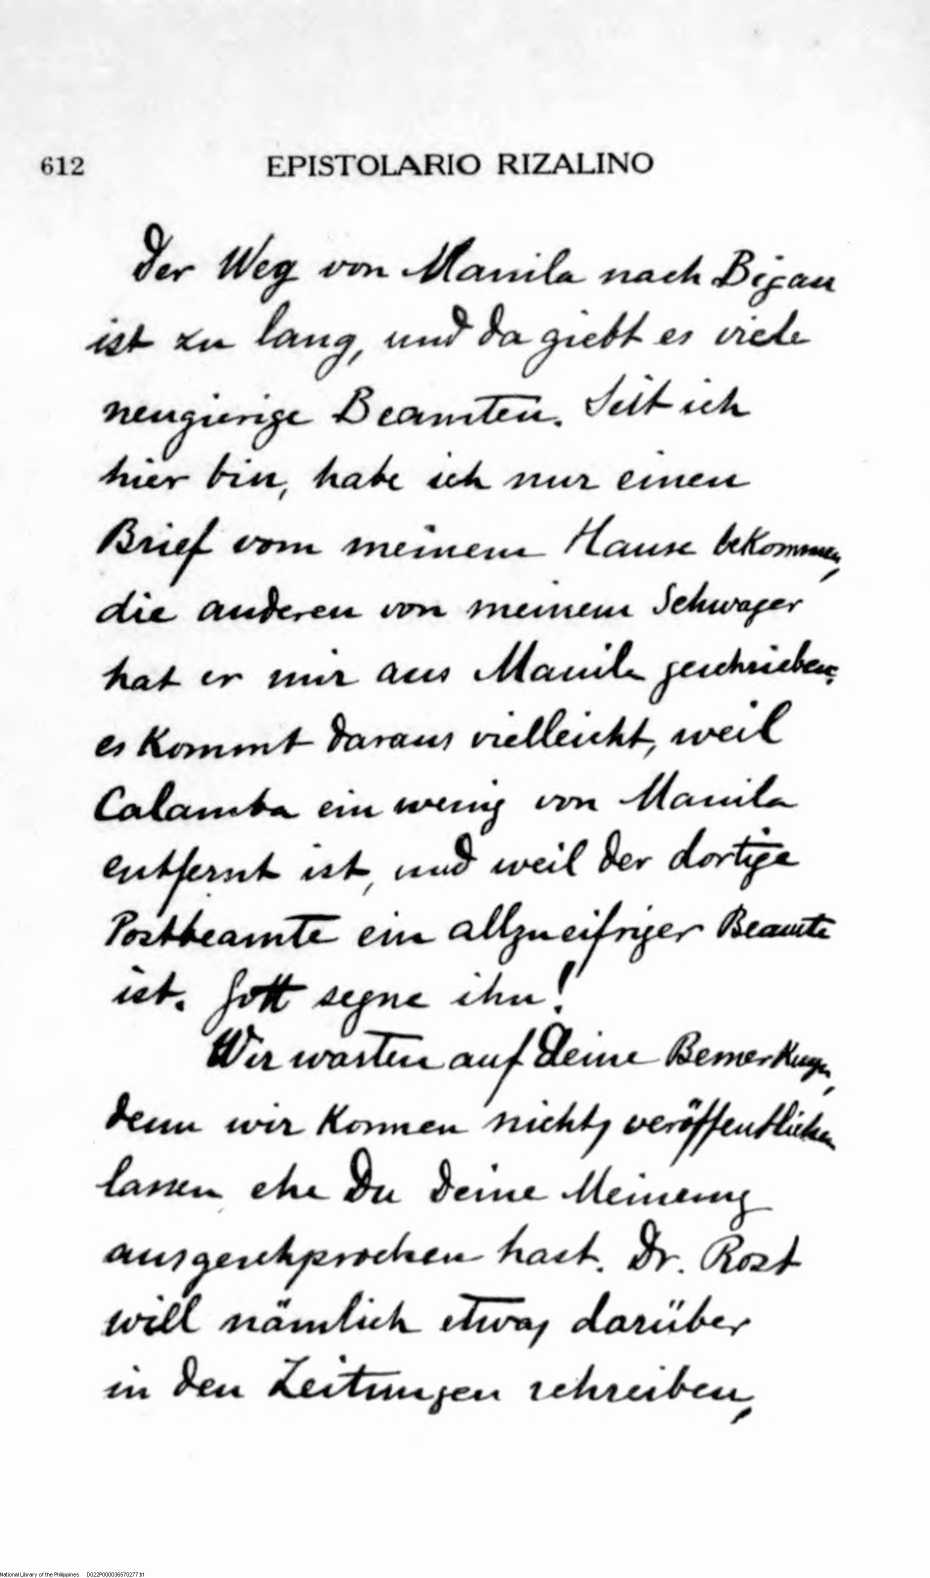 612 EPISTOLARIO RIZALINO
Der Weg von Manila nach Bigan
ist zu lang, und da giebt es viele
neugierige Beamten. Seit ich
hier bin, habe ich nur einen
Brief vom meinem Hause bekommen,
die anderen von meinem Schwager
hat er mir aus Manila geschrieben;
es kommt daraus vielleicht, weil
Calamba ein wenig von Manila
entfernt ist, und weil der dortige
Postbeamte ein allzueifriger Beamte
ist. Gott segne ihn!
Wir warten auf Deine Bemerkungen,
denn wir konnen nichts veröffentlichen
lassen ehe Du Deine Meinung
ausgeschprochen hast. Dr. Rost
will nämlich etwas darüber
in den Zeitungen schreiben,
National Library of the Philippines